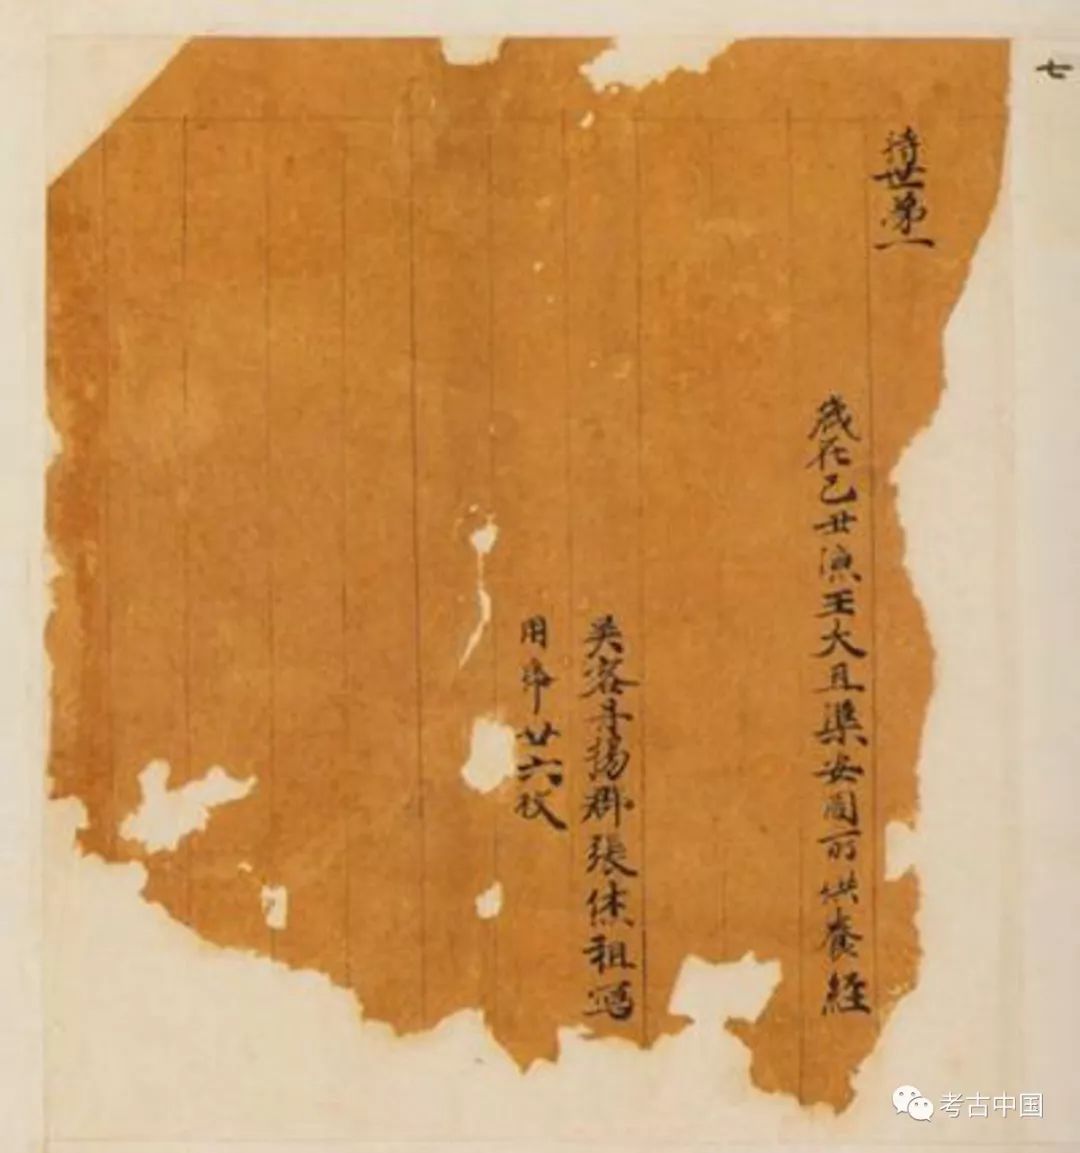 七
持世第一
歲在己丑涼王大且渠安周所供養經
吳客丹揚郡張休祖寫
用帋廿六枚
考古中国